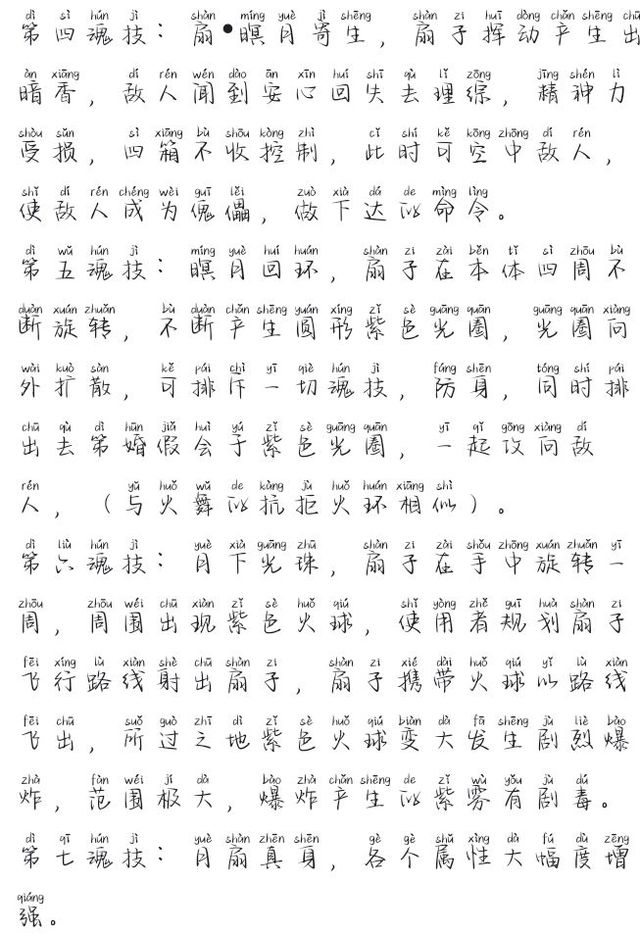 dì sì hún jì shàn míng yuè jì shēng shàn zi huī dòng chǎn shēng chū
第四魂技：扇•暝月寄生，扇子挥动产生出
àn xiāng dí rén wén dào ān xīn huí shī qù lǐ zōng jīng shén lì
暗香，敌人闻到安心回失去理综，精神力
shòu sǔn sì xiāng bù shōu kòng zhì cǐ shí kě kōng zhōng dí rén
受损，四箱不收控制，此时可空中敌人，
shǐ dí rén chéng wèi guī lěi zuò xià dá de mìng lìng
使敌人成为傀儡，做下达的命令。
dì wǔ hún jì míng yuè huí huán shàn zi zài běn tǐ sì zhōu bù
第五魂技：暝月回环，扇子在本体四周不
duàn xuán zhuǎn bù duàn chǎn shēng yuán xíng zǐ sè guāng quān guāng quān xiàng
断旋转，不断产生圆形紫色光圈，光圈向
wài kuò sàn kě pái chì yī qiè hún jì fáng shēn tóng shí pái
外扩散，可排斥一切魂技，防身，同时排
chū qù dì hūn jiǎ huì yú zǐ sè guāng quān yī qǐ gōng xiàng dí
出去第婚假会于紫色光圈，一起攻向敌
rén yǔ huǒ wǔ de kàng jù huǒ huán xiāng shì
人，（与火舞的抗拒火环相似）。
dì liù hún jì yuè xià guāng zhū shàn zi zài shǒu zhōng xuán zhuǎn yī
第六魂技：月下光珠，扇子在手中旋转一
zhōu zhōu wéi chū xiàn zǐ sè huǒ qiú shǐ yòng zhě guī huà shàn zi
周，周围出现紫色火球，使用者规划扇子
fēi xíng lù xiàn shè chū shàn zi shàn zi xié dài huǒ qiú yǐ lù xiàn
飞行路线射出扇子，扇子携带火球以路线
fēi chū suǒ guò zhī dì zǐ sè huǒ qiú biàn dà fā shēng jù liè bào
飞出，所过之地紫色火球变大发生剧烈爆
zhà fàn wéi jí dà bào zhà chǎn shēng de zǐ wù yǒu jù dú
炸，范围极大，爆炸产生的紫雾有剧毒。
dì qī hún jì yuè shàn zhēn shēn gè gè shǔ xìng dà fú dù zēng
第七魂技：月扇真身，各个属性大幅度增
qiáng
强。